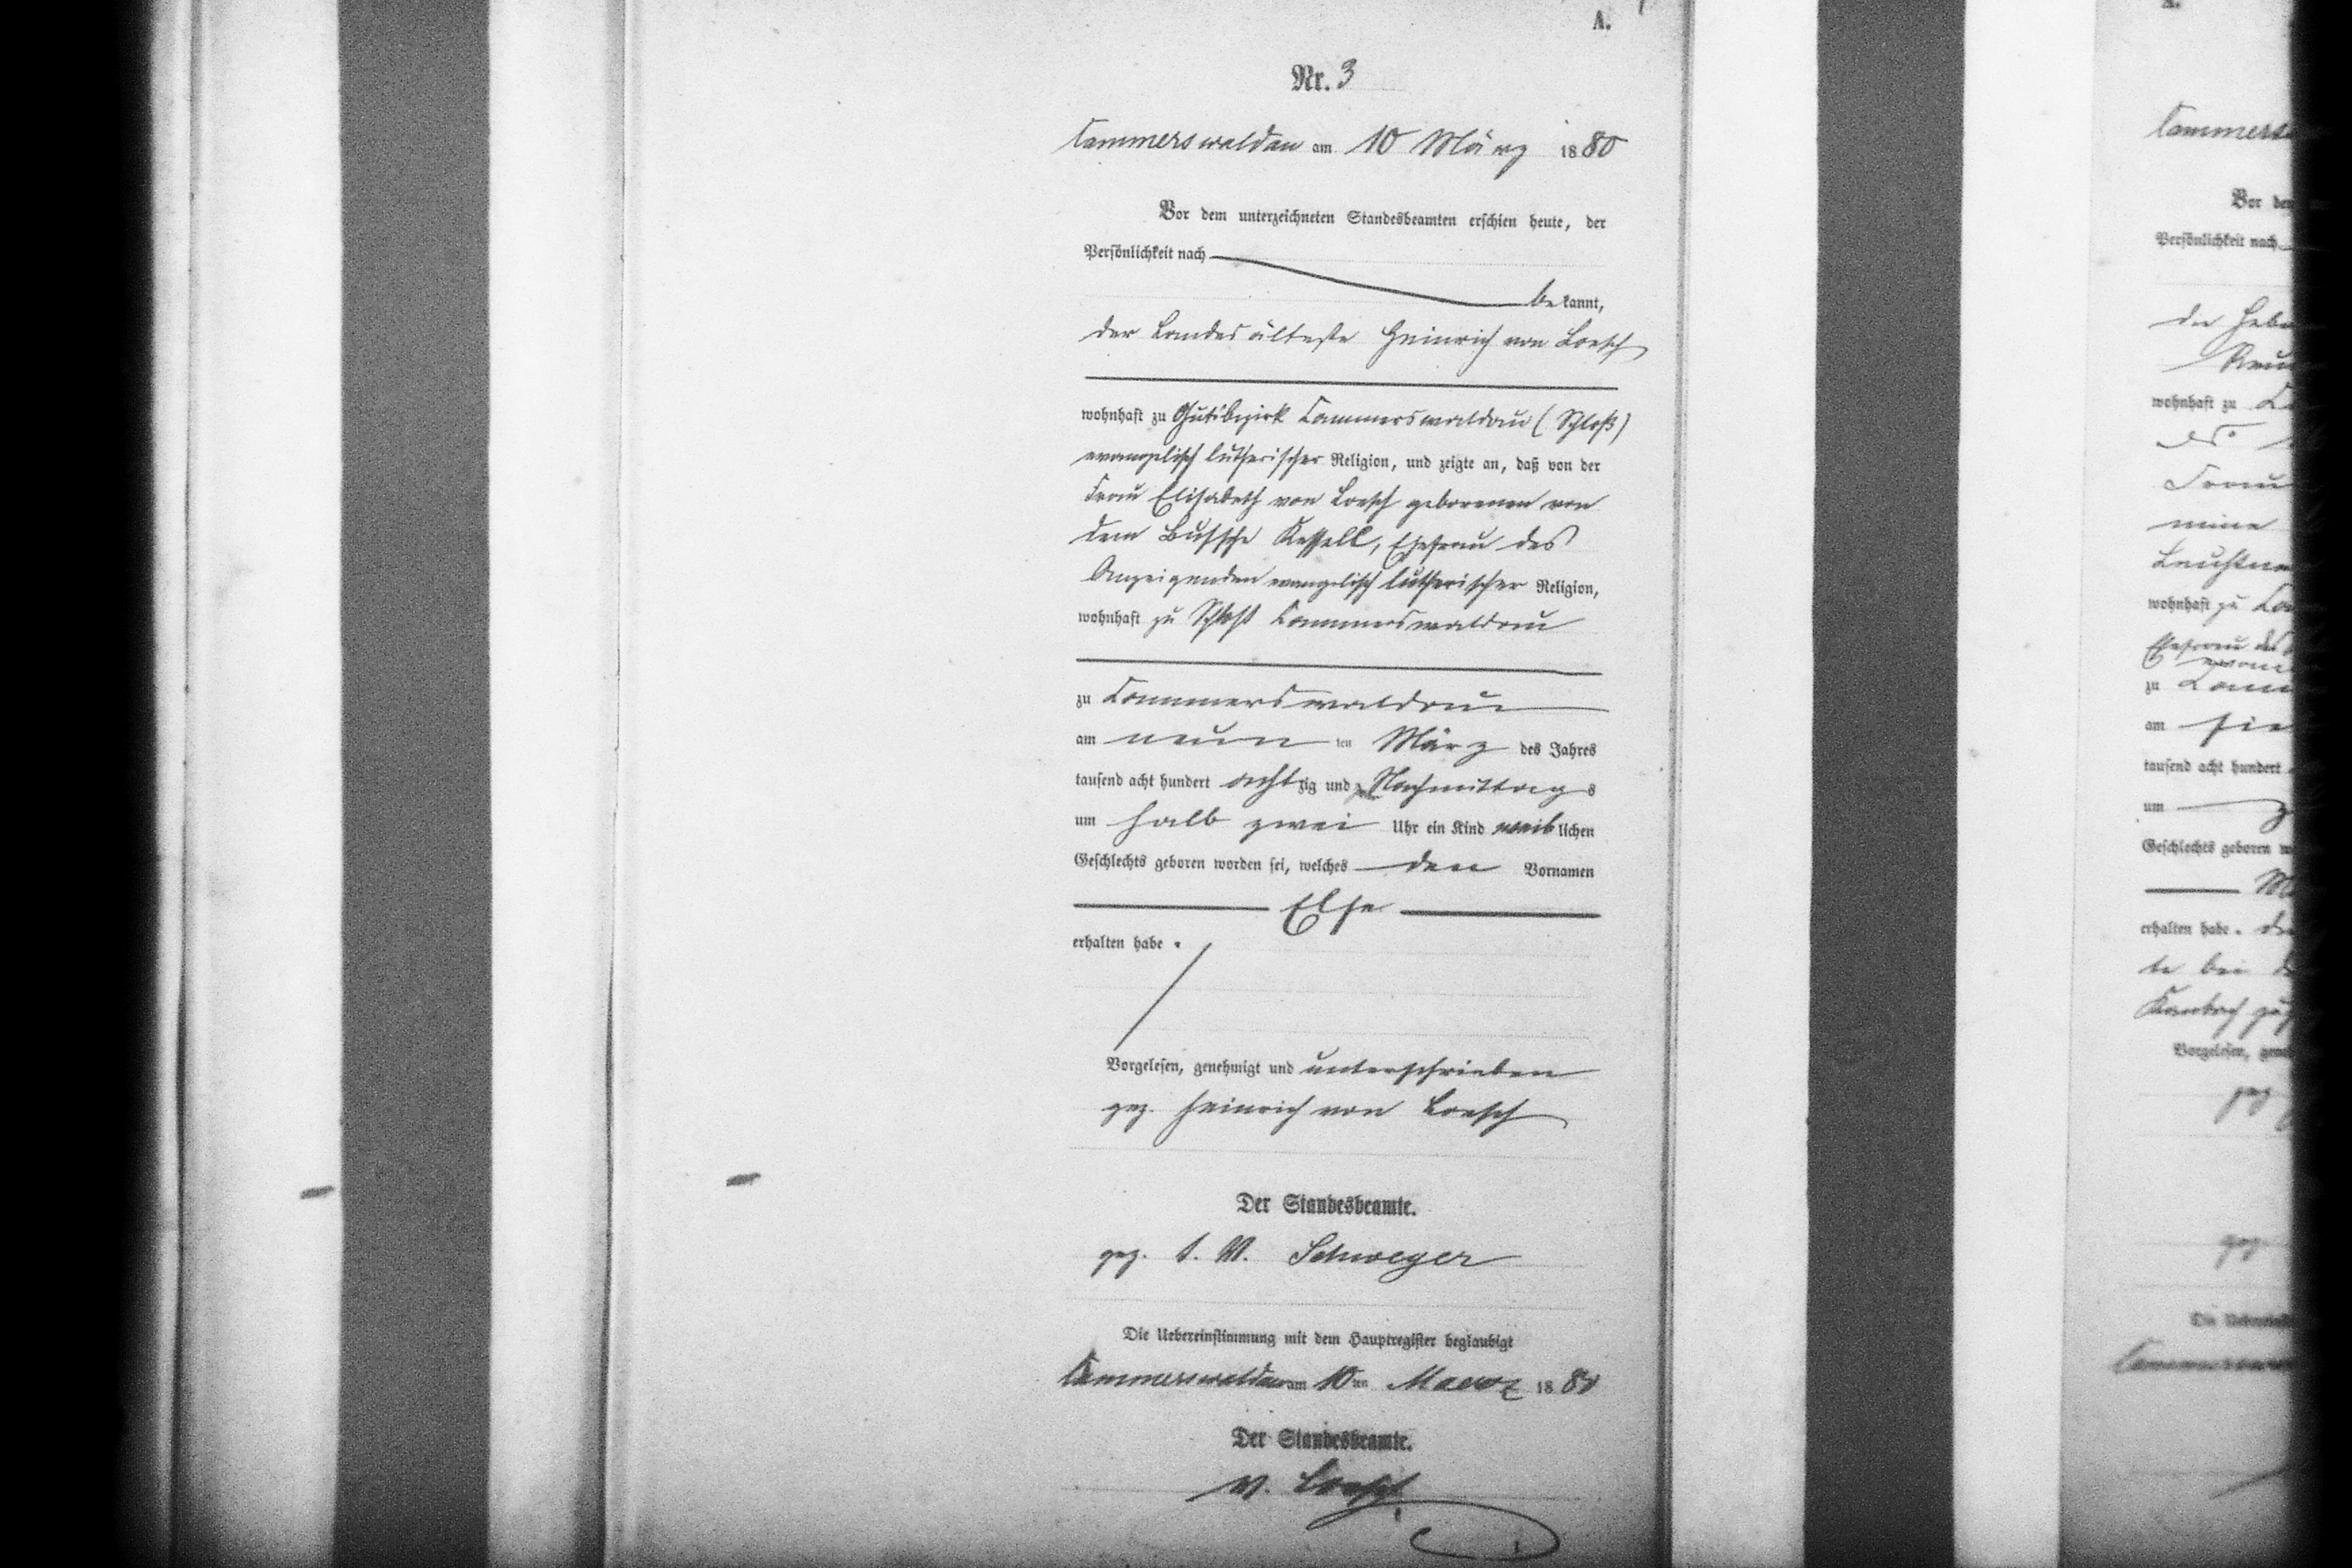 A.
Nr. 3
Cammerswaldau am 10 März 1880
Vor dem unterzeichneten Standesbeamten erschien heute, der
Persönlichkeit nach
be kannt,
der Landesälteste Heinrich von Loesch
wohnhaft zu Gutsbezirk Cammerswaldau (Schloß)
evangelisch lutherischer Religion, und zeigte an, daß von der
Frau Elisabeth von Loesch geborenen von
dem Bussche Kessell, Ehefrau des
Anzeigenden evangelisch lutherischer Religion,
wohnhaft zu Schloß Cammerswaldau
zu Cammerswaldau
am neun ten März des Jahres
tausend acht hundert achtzig und Nachmittags
um halb zwei Uhr ein Kind weiblichen
Geschlechts geboren worden sei, welches den Vornamen
Else
erhalten habe.
Vorgelesen, genehmigt und unterschrieben
gez. Heinrich von Loesch
Der Standesbeamte.
gez. I. V. Schweger
Die Uebereinstimmung mit dem Hauptregister beglaubigt
Cammerswaldau am 10ten Maerz 1880
Der Standesbeamte.
v. Loesch
A.
Vor dem
Persönlichkeit nach
wohnhaft zu
wohnhaft zu
zu
am
tausend acht hundert
um
Geschlechts geboren
erhalten habe.
Vorgelesen,